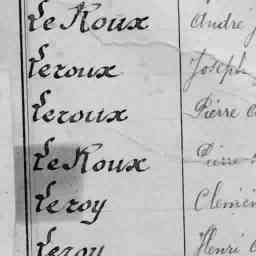 Le Roux André
Leroux Joseph
Leroux Pierre
Le Roux Pierre
Leroy
Leroy Henri